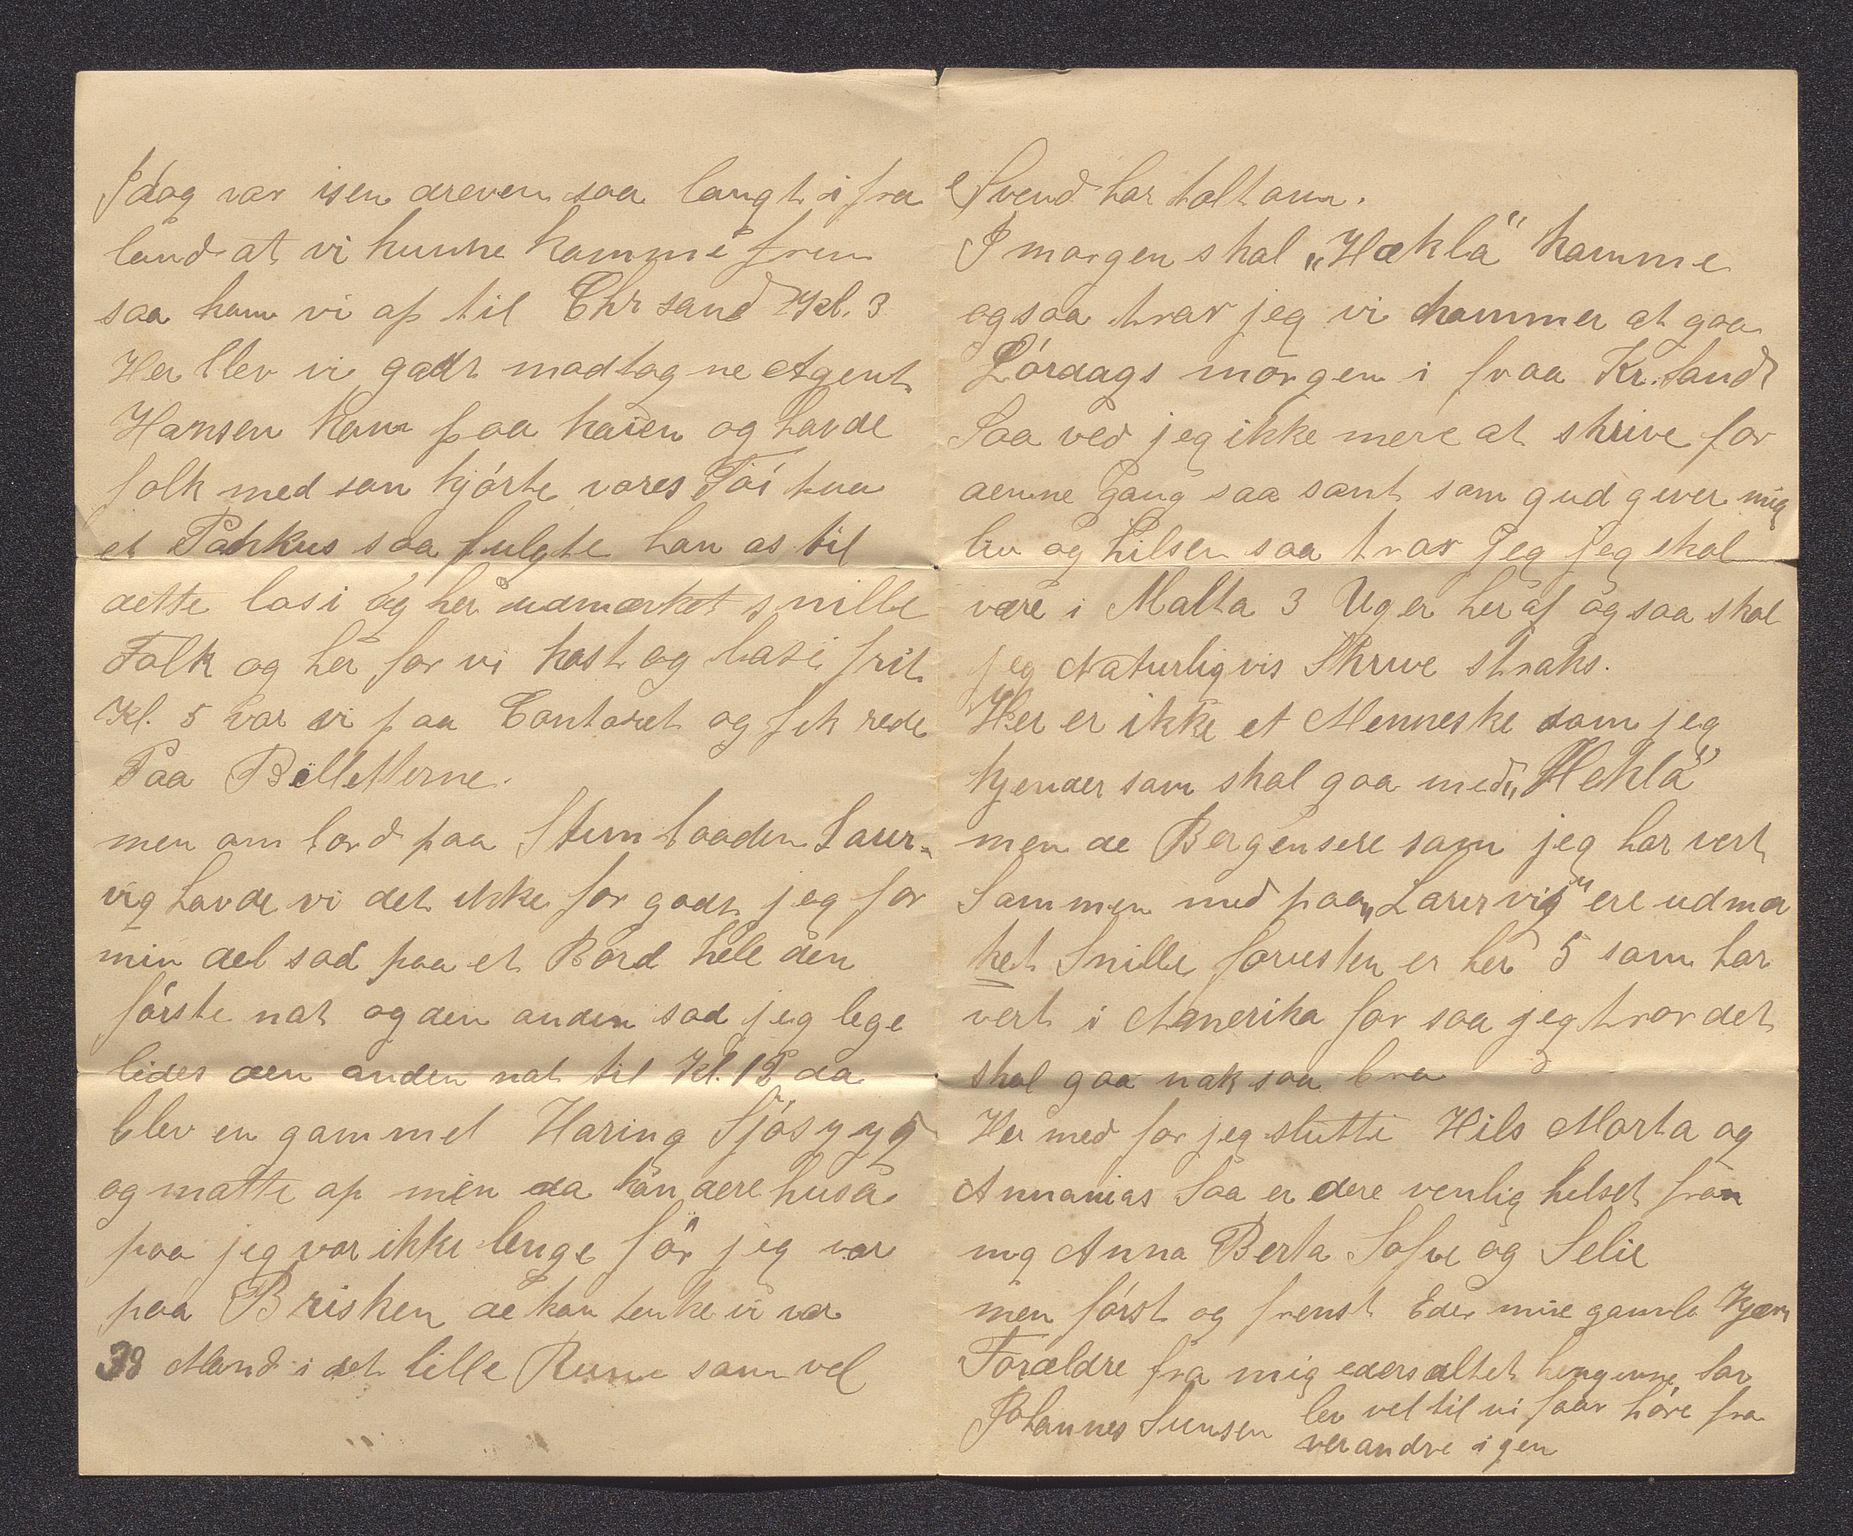 Idag var isen dreven saa langt ifra
land at vi kunne komme frem
saa kom vi op til Chrsand Kl. 3
Her blev vi godt modtagne Agent
Hansen kom paa kaien og havde
folk med som kjórte vores Tói
et Pakkus saa fulgte han os til
dette losi og her udmærket snille
Folk og her for vi kost og losi frit
Kl. 5 var vi paa Contoret og fik rede
Paa Billetterne.
men om bord paa Stimbaaden Laur-
vig havde vi det ikke for godt jeg for
min del sad paa et Bord hele den
fórste nat og den anden sad jeg lege
ledes den anden nat til Kl. 12 da
blev en gammel Haring Sjósyyg
og matte op men da kan dere husa
paa jeg var ikke lenge fór jeg var
paa Brisken de kan tenke vi var
38 Mand i det lille Rum som vel
Svend har talt om.
I morgen skal „Hækla" komme
og saa tror jeg vi kommer at gaa
Lórdags morgen i fraa Kr.sand
Saa ved jeg ikke mere at skrive for
denne Gang saa sant som gud giver mig
liv og hilsen saa tror jeg jeg skal
være i Malta 3 Uger her af og saa skal
jeg Naturligvis Skrive straks.
Her er ikke et Menneske som jeg
kjender som skal gaa med „Hekla"
men de Bergensere som jeg har vert
Sammen med paa „Laurvig" ere udmær
ket Snille foruesten er her 5 som har
vert i Amerika for saa jeg tror det
skal gaa nok saa bra
Her med for jeg slutte Hils Marta og
Annanias Saa er dere venlig hilset fra
mig Anna Berta Sofie og Selie
men fórst og fremst Eder mine gamle Kjære
Forældre fra mig eders altet hengivne Són
Johannes Sunsen lev vel til vi faar hóre fra
verandre igen